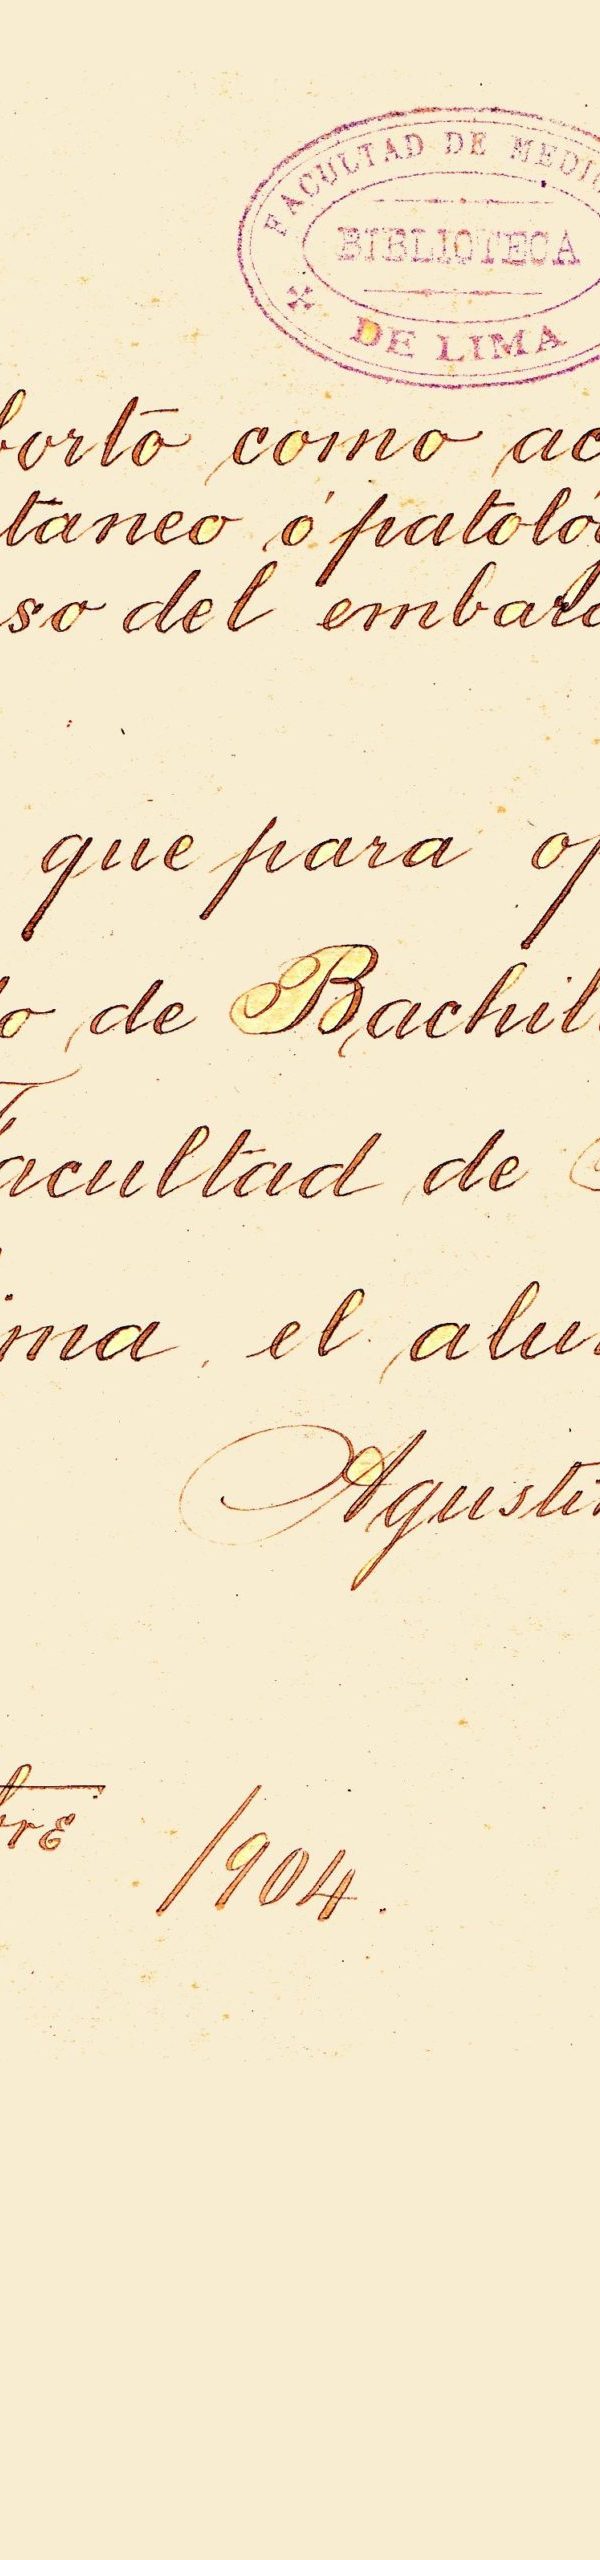 FACULTAD DE MEDIC
BIBLIOTECA
DE LIMA
borto como ac
taneo ó patoló
so del embara
que para op
do de Bachill
Facultad de
ima, el alum
Agustin
bre /904.